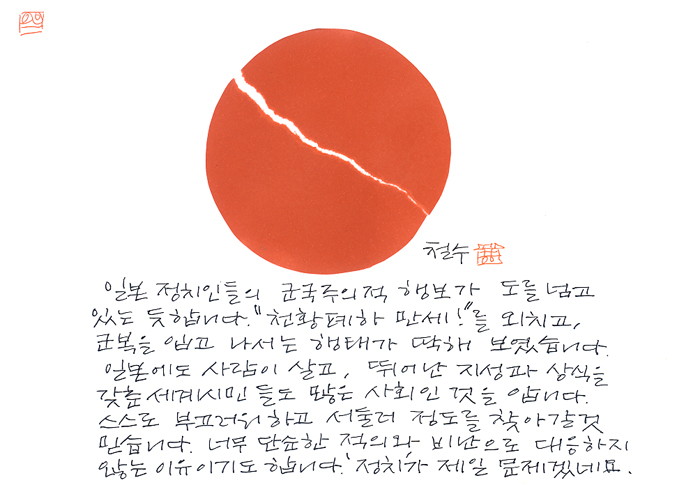 철수
일본 정치인들의 군국주의적 행보가 도를 넘고
있는 듯합니다. "천황폐하 만세!"를 외치고,
군복을 입고 나서는 행태가 딱해 보였습니다.
일본에도 사람이 살고, 뛰어난 지성과 상식을
갖춘 세계시민들도 많은 사회인 것을 압니다.
스스로 부끄러워하고 서둘러 정도를 찾아갈것
믿습니다. 너무 단순한 적의와, 비난으로 대응하지
않는 이유이기도 합니다. '정치'가 제일 문제겠네요.